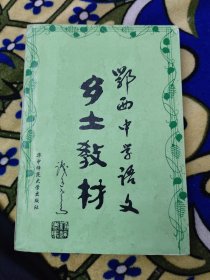 鄂西中学语文
乡土教材
华中师范大学出版社